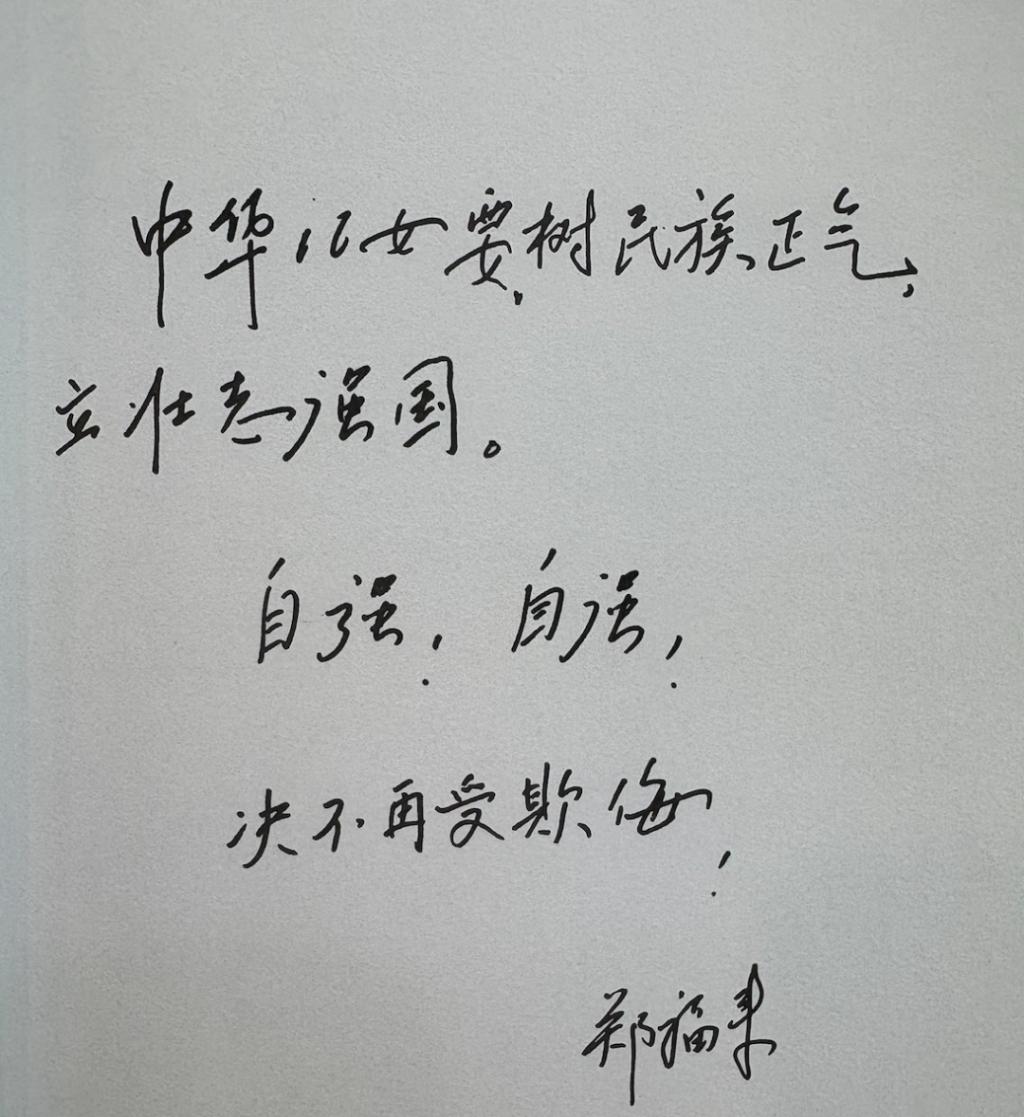 中华儿女要树民族正气,
立壮志强国。
自强!自强!
决不再受欺侮!
郑福来